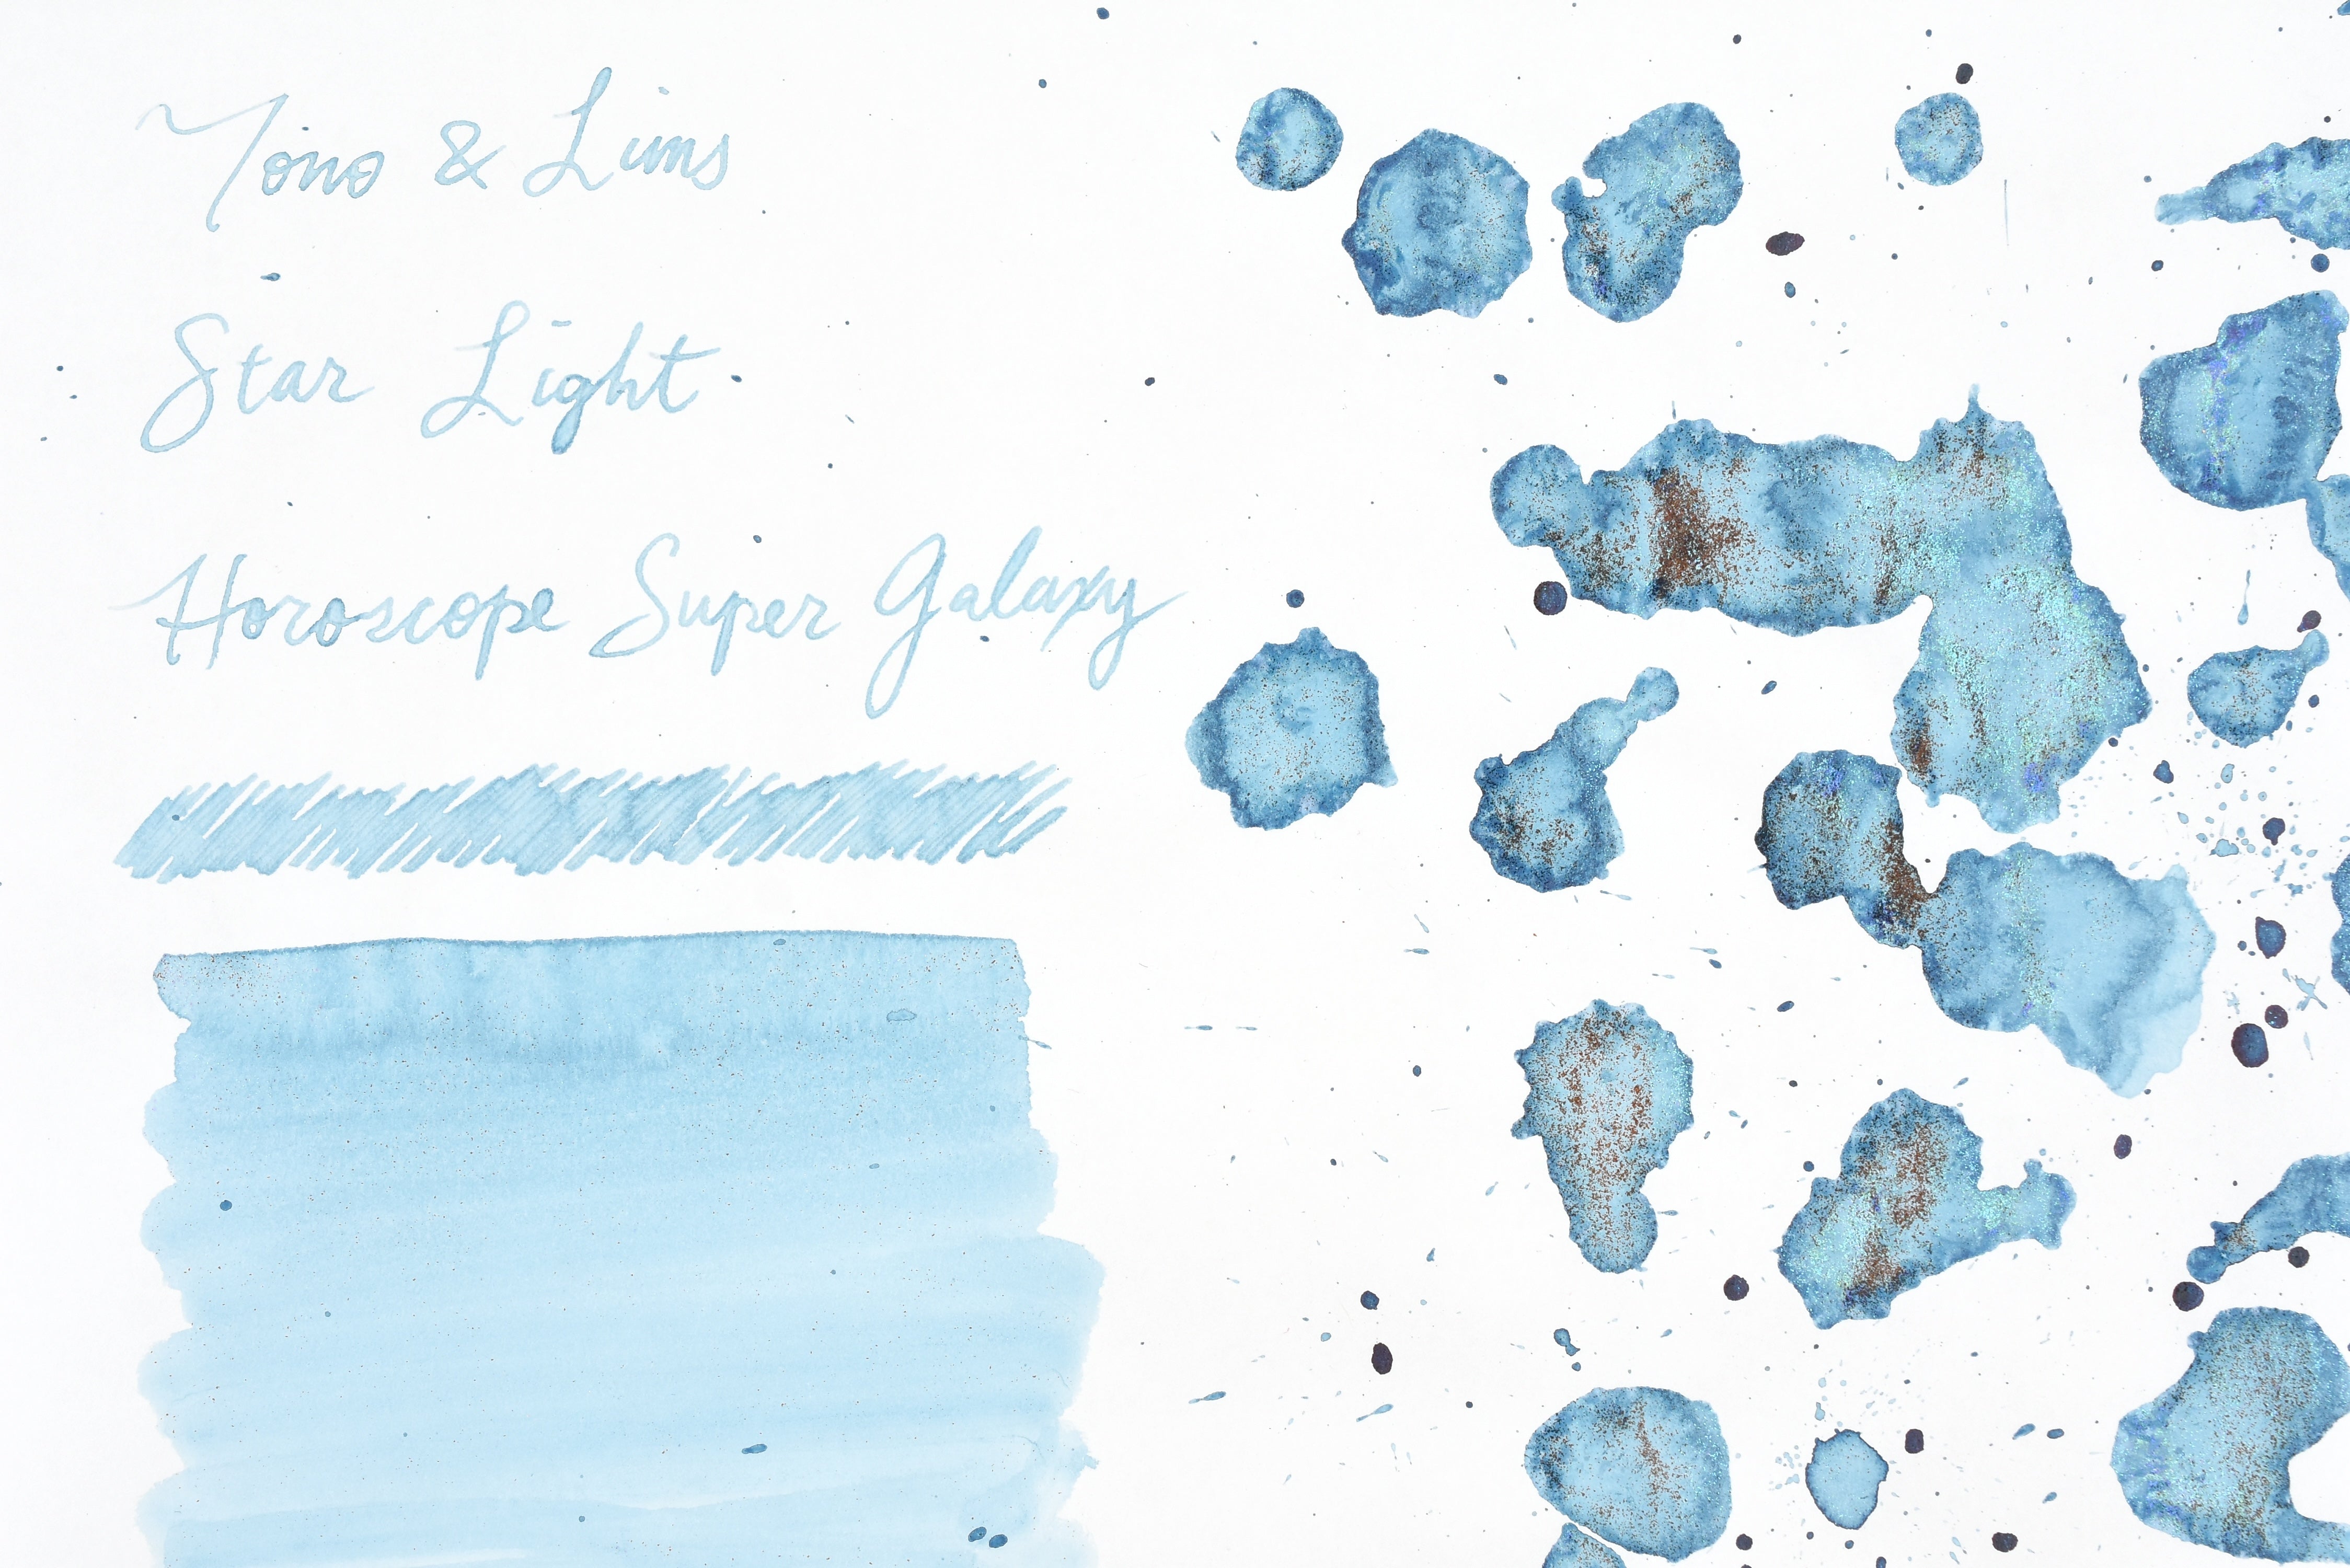 Tono & Lims
Star Light
Horoscope Super Galaxy